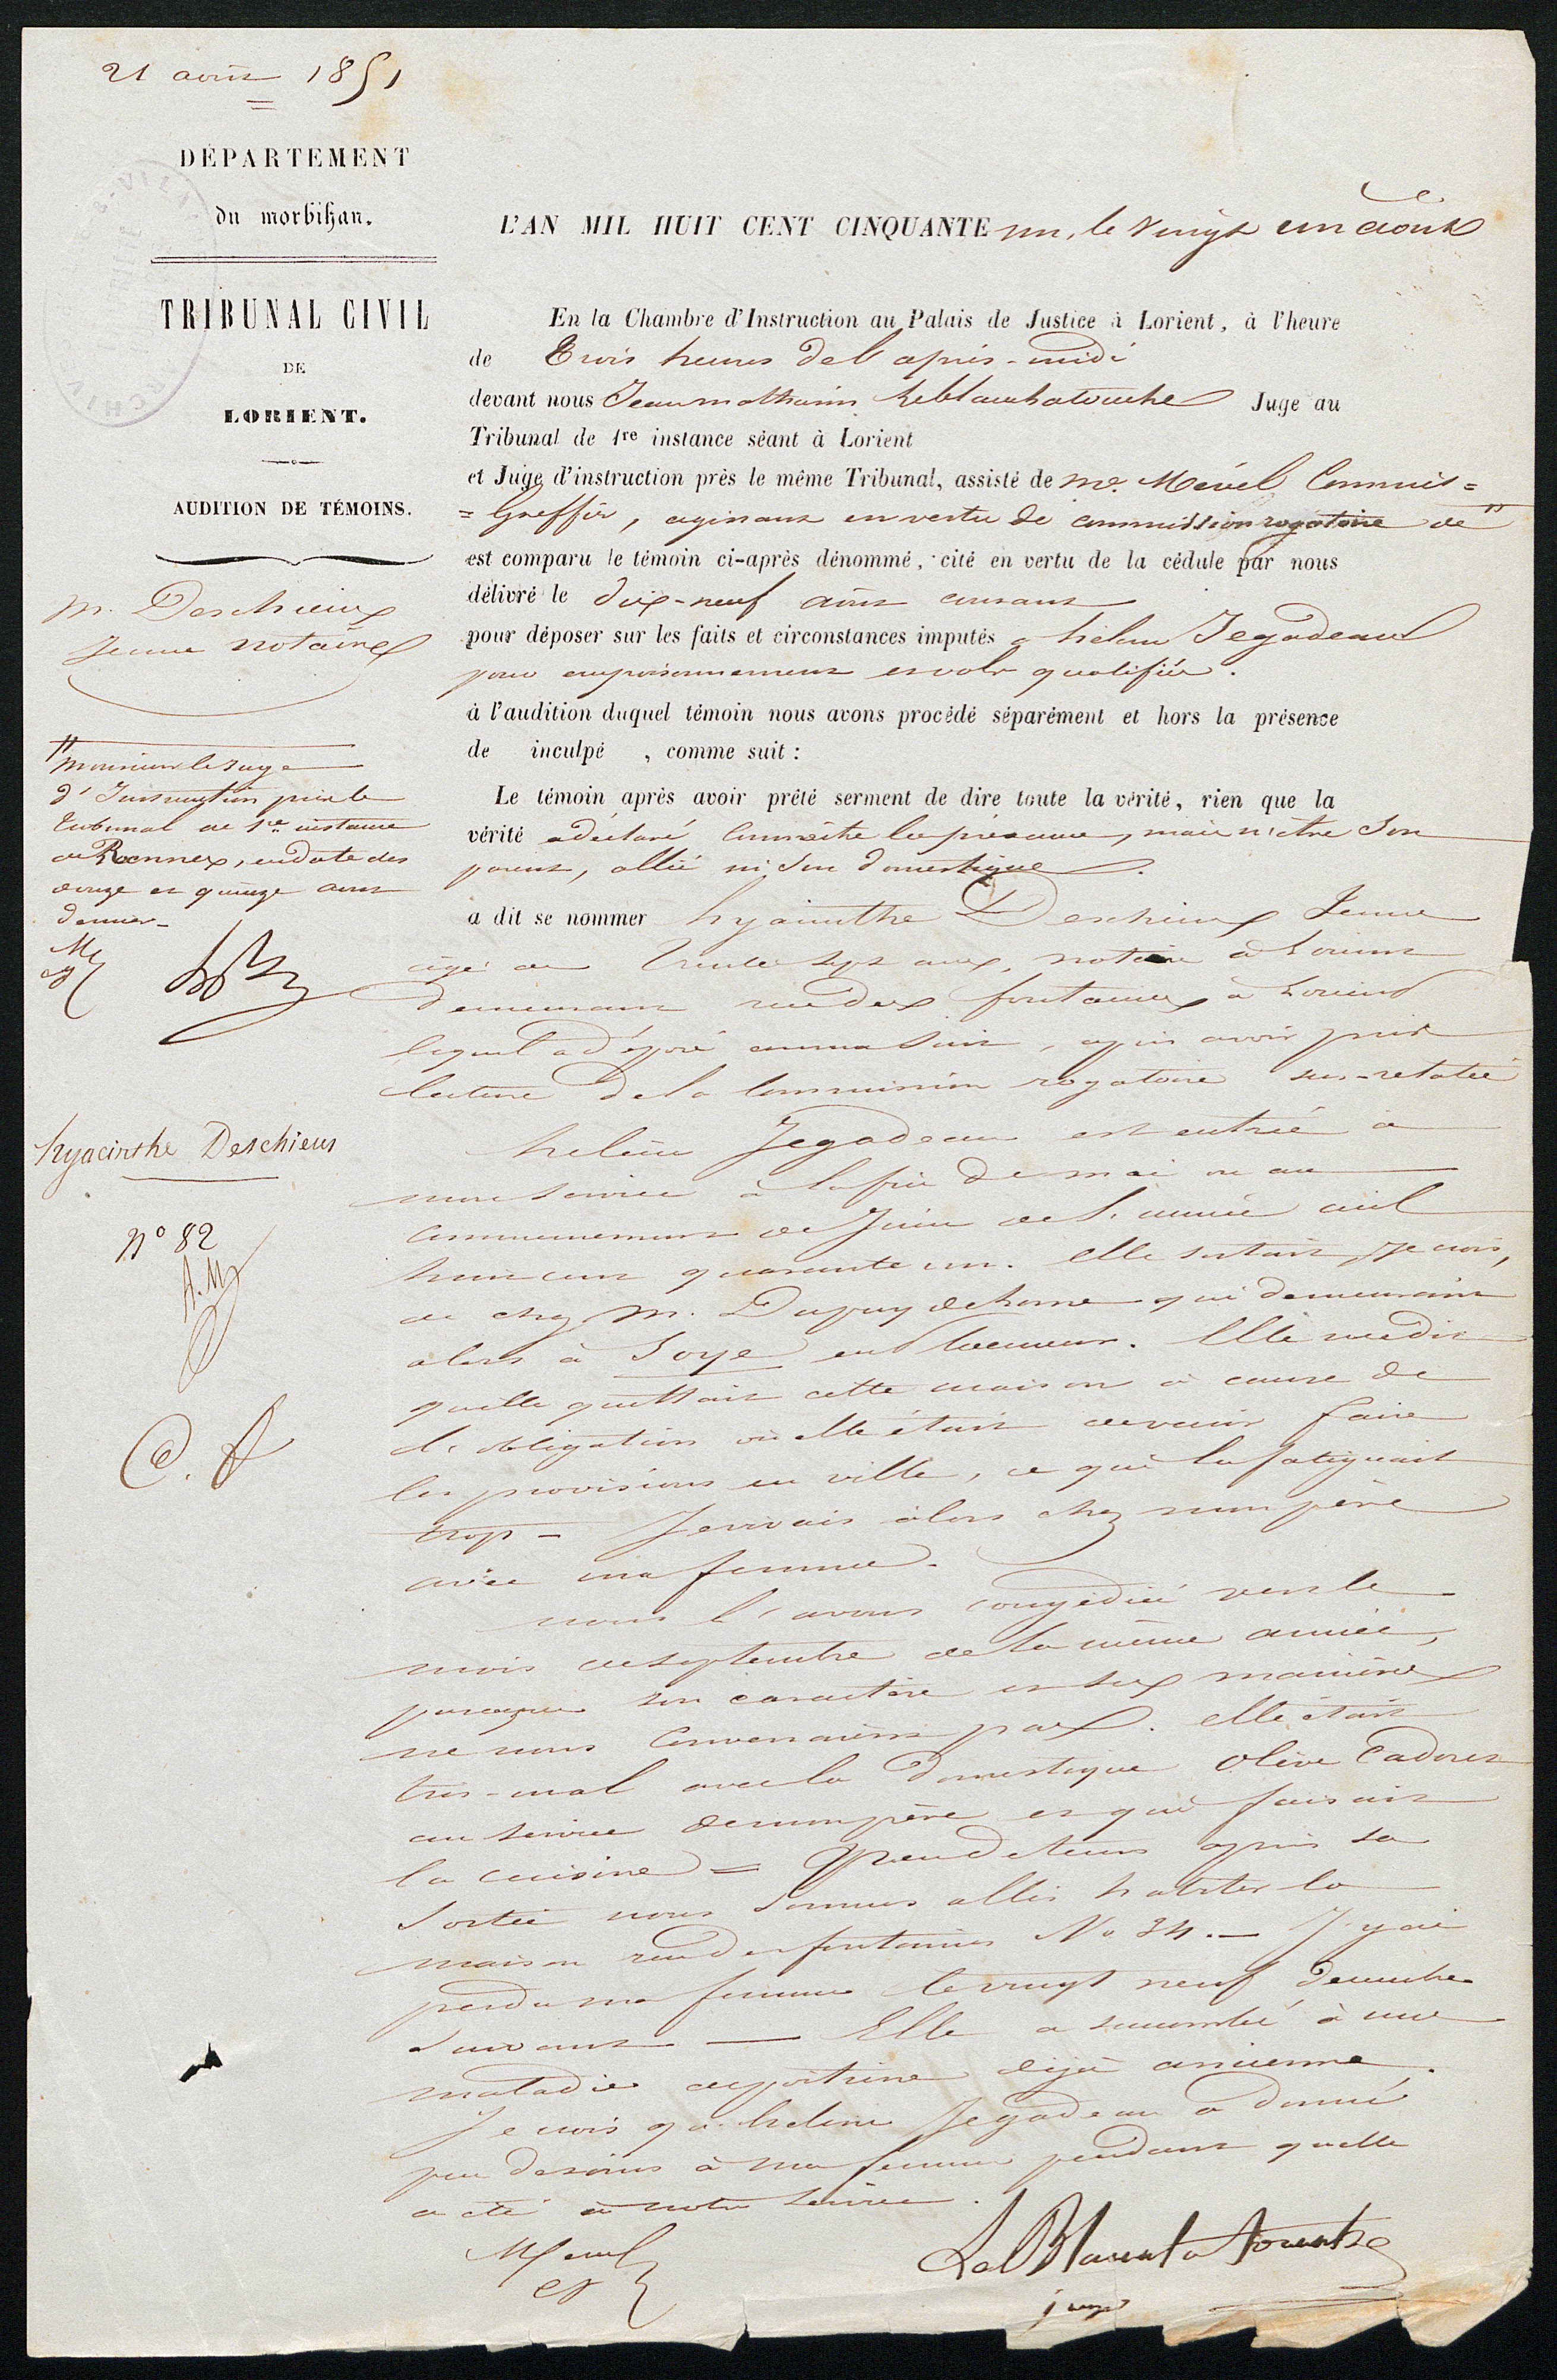 21 août 1851
DÉPARTEMENT
du morbihan.
TRIBUNAL CIVIL
DE
LORIENT.
AUDITION DE TÉMOINS.
M. Deschieux
Jeune notaire
" Monsieur le Juge
d'Instruction près le
tribunal de 1re instance
de Rennes, en date des
douze et quinze août
dernier
Hyacinthe Deschiens
N° 82
A.M
L'AN MIL HUIT CENT CINQUANTE un, le vingt un août
En la Chambre d'Instruction au Palais de Justice à Lorient, à l'heure
de Trois heures de l'après-midi
devant nous Jean mathurin Leblanchatouche Juge au
Tribunal de 1re instance séant à Lorient
et Juge d'instruction près le même Tribunal, assisté de Me. Mével Commis=
=Greffier, agissant en vertu de commission rogatoire de "
est comparu le témoin ci-après dénommé, cité en vertu de la cédule par nous
délivré le dix-neuf août courant
pour déposer sur les faits et circonstances imputés a hélène Jegadeau
pour empoisonnement et vols qualifiés.
à l'audition duquel témoin nous avons procédé séparément et hors la présence
de inculpé , comme suit :
Le témoin après avoir prêté serment de dire toute la vérité, rien que la
vérité a déclaré connaître la prévenue, mais n'être son
parent, allié ni son domestique.
a dit se nommer hyacinthe Deschieux Jeune
âgé de trente sept ans, notaire à Lorient
demeurant rue des fontaines à Lorient
lequel a déposé comme suit, après avoir pris
lecture de la Commission rogatoire sus-relatée
helène Jegadeau est entrée à
mon service à la fin de mai ou au
commencement de Juin de l'année mil
huit cent quarante un. Elle sortait, je crois,
de chez M. Dupuy delome qui demeurait
alors à Soye en Ploemeur. Elle me dit
qu'elle quittait cette maison à cause de
l'obligation où elle était de venir faire
les provisions en ville, ce qui la fatiguait
trop - Je vivais alors chez mon père
avec ma femme.
nous l'avons congédiée vers le
mois de septembre de la même année,
parceque son caractère et ses manières
ne nous convenaient pas. elle était
très-mal avec la domestique Olive Cadoret
au service de mon père et qui faisait
la cuisine = Peu de tems après sa
sortie nous sommes allés habiter la
maison rue des fontaines No 34. - J'y ai
perdu ma femme le vingt neuf décembre
suivant — Elle a succombé à une
maladie de poitrine déjà ancienne.
Je crois qu'helène Jegadeau a donné
peu de soins à ma femme pendant qu'elle
a été à notre service.
Mével
LeBlanchatouche
juge